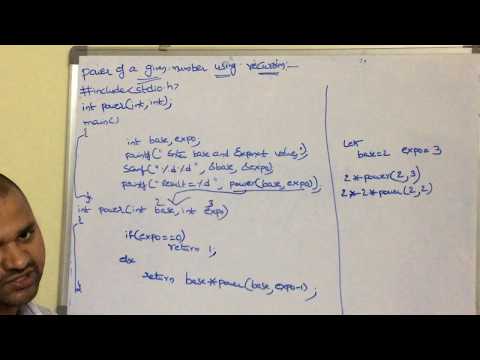 power of a given number using recursion
#include<stdio.h>
int power(int,int);
main()
{
int base,expo;
printf("Enter base and Exponent value");
Scanf("%d%d", &base, &expo);
printf("Result=%d", power(base, expo));
}
2 3
int power(int base, int expo)
{
if(expo==0)
return 1;
else
return base*power(base, expo-1);
}
Let
base=2 expo=3
2*power(2,3)
2*2*power(2,2)